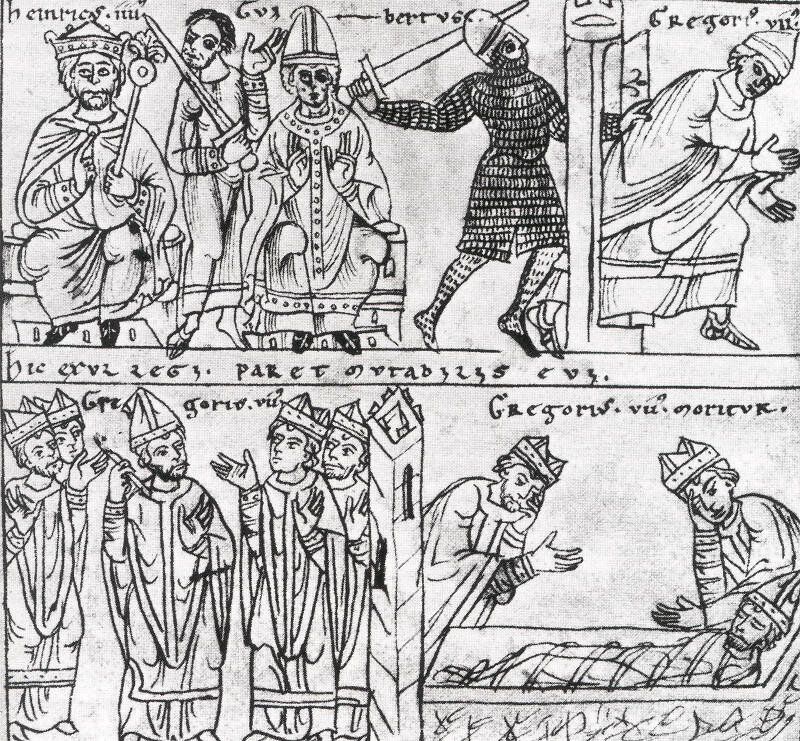 heinricꝰ. iiii Gui bertus. Gregoriꝰ. vii
hic exul regi. paret mutabilis evi.
Gre goriꝰ. vii Gregoriꝰ. vii. moritur.